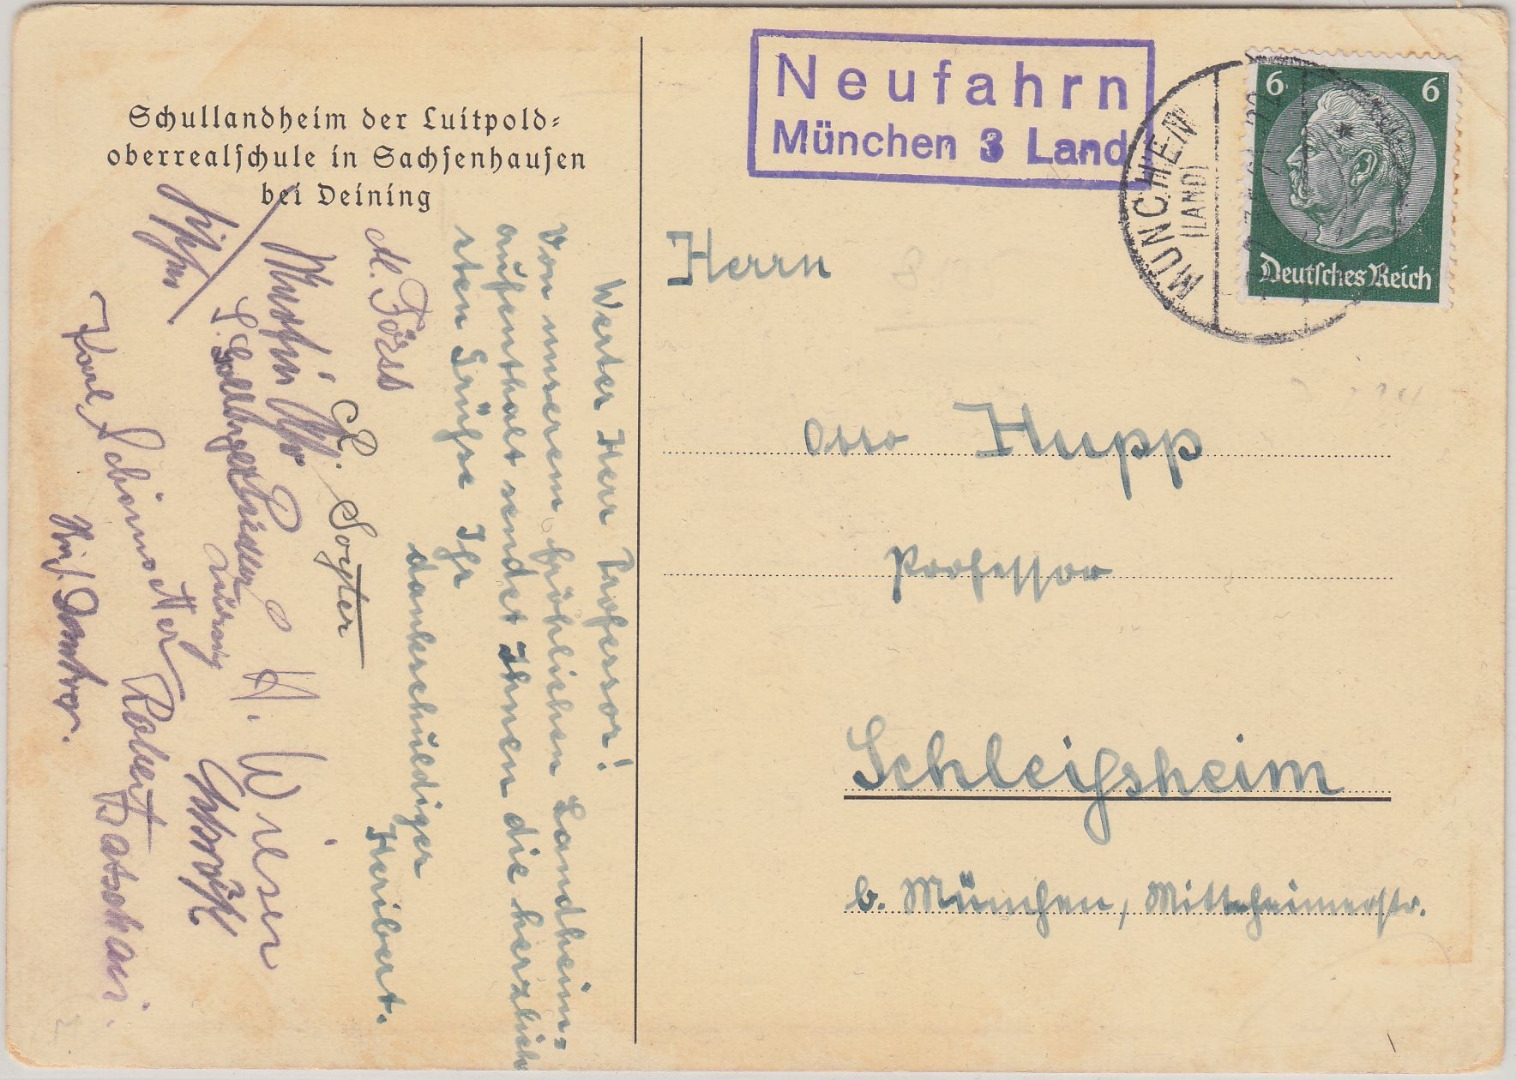 Schullandheim der Luitpold-
oberrealschule in Sachsenhausen
bei Deining
Werter Herr Professor!
Von unserem fröhlichen Landheim-
aufenthalt sendet Ihnen die herzlich
sten Grüsse Ihr
dankschuldiger
Heribert.
M. Förss
G. Soyter
Martin
H. Wieser
Karl Schinotter
Robert Batschari.
Neufahrn
München 3 Land
MÜNCHEN
(LAND)
6 6
Deutsches Reich
Herrn
Otto Hupp
Professor
Schleißheim
b. München, Mittenheimerstr.